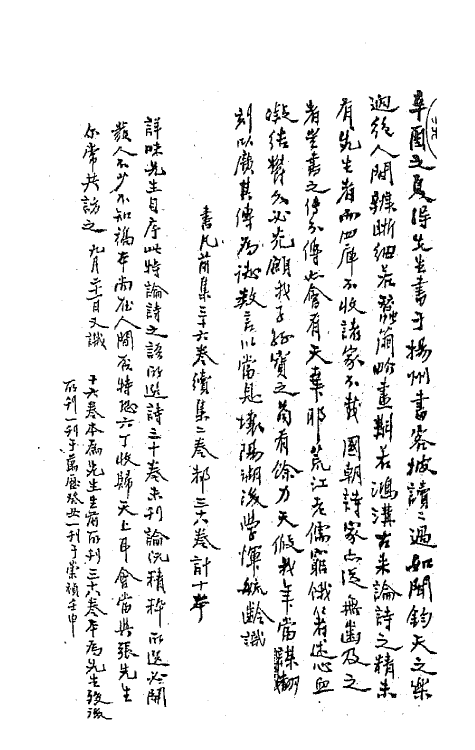 辛酉之夏得先生書于揚州書客披讀一過如聞鈞天之樂
迥絶人間辨晰細若蠶繭吟畫斟若鴻溝古来論詩之精未
有先生者而四庫不收諸家不載國朝詩家亦從無齒及之
者豈書之傳不傳亦會有天幸耶荒江老儒窮餓著述心血
凝結雙久必光願我子孫寶之苟有餘力天假我年當謀翻
刻以廣其傳為誌數言以當息壤陽湖後學惲毓齡識
書凡前集三十六卷續集二卷都三十八卷計十本
詳味先生自序此特論詩之語所選詩三十卷未刊論既精粹所選必開
發人不少不知稿本尚在人間否特恐六丁收歸天上耳會當與張先生
尔常共訪之 九月二十二日又識
十六卷本為先生生前所刊三十六卷本為先生歿後
所刊一刊于萬曆癸丑一刊于崇禎壬申